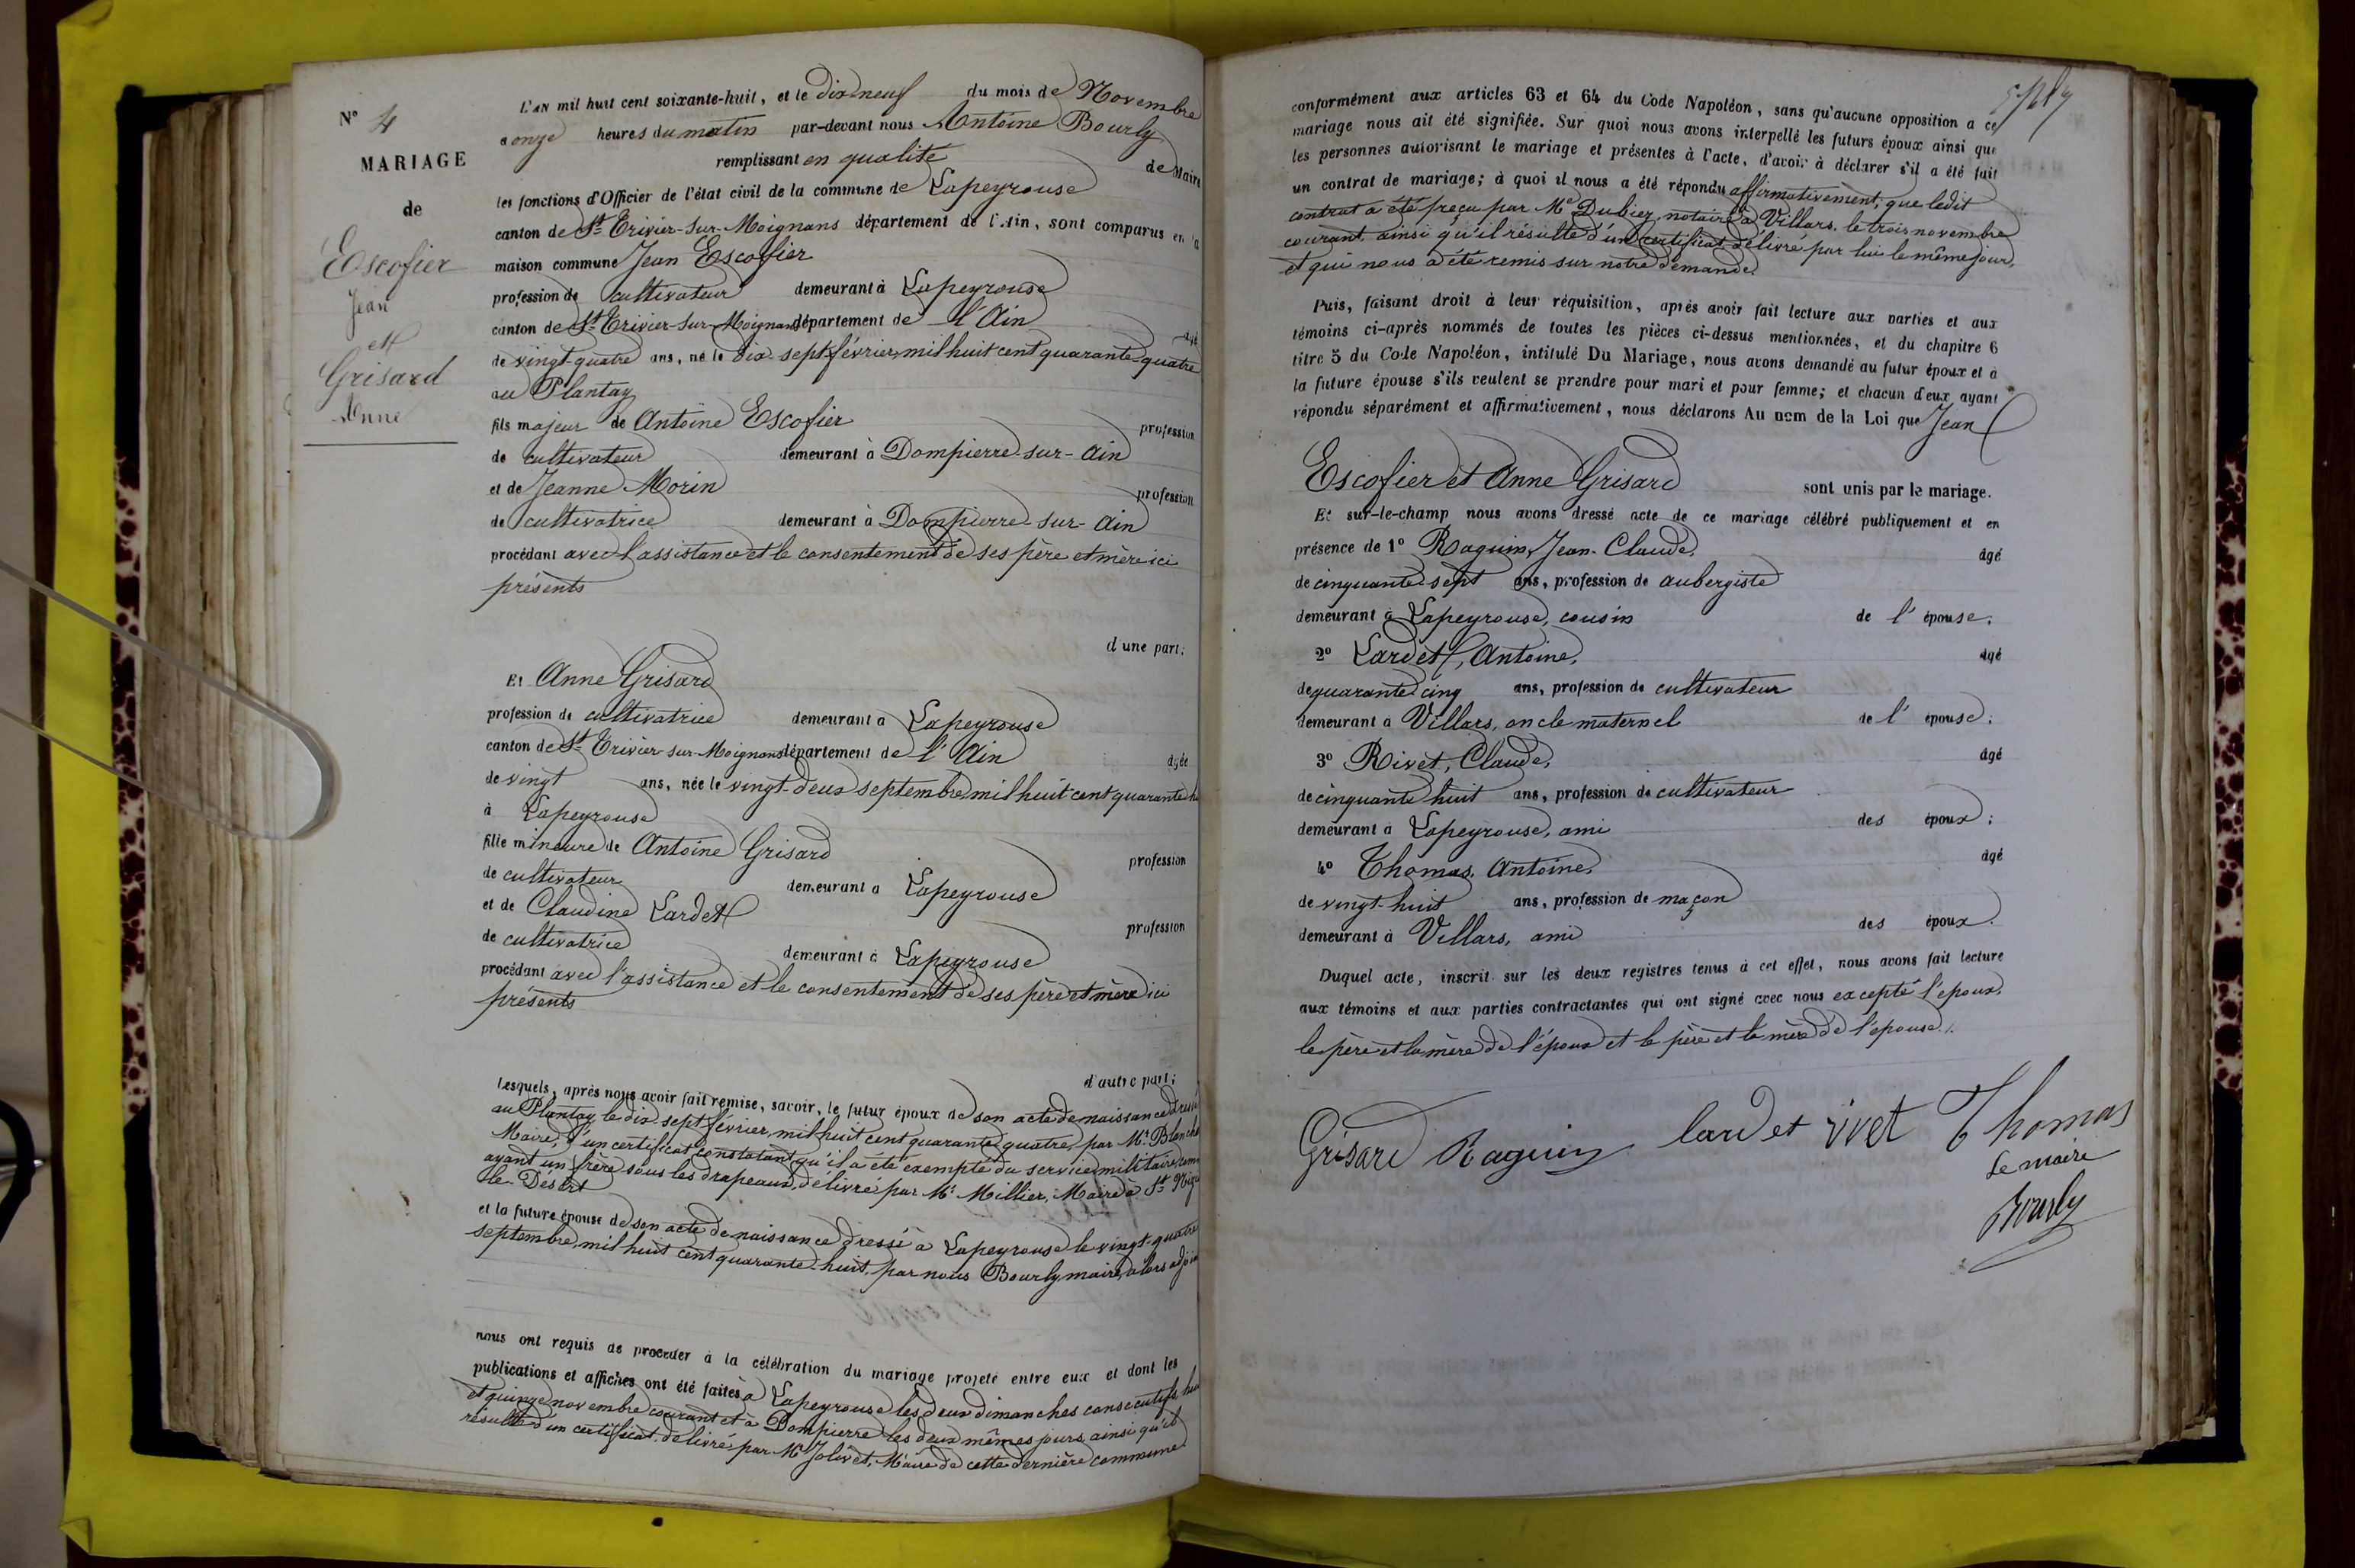 N° 4
MARIAGE
de
Escofier
Jean
et
Grisard
Anne
L'AN mil huit cent soixante-huit, et le dix-neuf du mois de Novembre
à onze heures du matin par-devant nous Antoine Bourly
remplissant en qualité de Maire
les fonctions d'Officier de l'état civil de la commune de Lapeyrouse
canton de St Trivier-sur-Moignans département de l'Ain, sont comparus en la
maison commune Jean Escofier
profession de cultivateur demeurant à Lapeyrouse
canton de St Trivier-sur-Moignans département de l'Ain âgé
de vingt-quatre ans, né le dix-sept février mil huit cent quarante-quatre
au Plantay
fils majeur de Antoine Escofier profession
de cultivateur demeurant à Dompierre-sur-Ain
et de Jeanne Morin profession
de cultivatrice demeurant à Dompierre-sur-Ain
procédant avec l'assistance et le consentement de ses père et mère ici
présents
d'une part;
Et Anne Grisard
profession de cultivatrice demeurant à Lapeyrouse
canton de St Trivier-sur-Moignans département de l'Ain âgée
de vingt ans, née le vingt-deux septembre mil huit cent quarante
à Lapeyrouse
fille mineure de Antoine Grisard profession
de cultivateur demeurant à Lapeyrouse
et de Claudine Lardet profession
de cultivatrice demeurant à Lapeyrouse
procédant avec l'assistance et le consentement de ses père et mère ici
présents
d'autre part;
Lesquels, après nous avoir fait remise, savoir, le futur époux de son acte de naissance dressé
au Plantay le dix-sept février mil huit cent quarante-quatre, par Mr
Maire, d'un certificat constatant qu'il a été exempté du service militaire
ayant un frère sous les drapeaux, délivré par Mr Millier, Maire à St
le-Désert
et la future épouse de son acte de naissance dressé à Lapeyrouse le vingt-quatre
septembre mil huit cent quarante-huit, par nous Bourly maire, alors
nous ont requis de procéder à la célébration du mariage projeté entre eux et dont les
publications et affiches ont été faites à Lapeyrouse les deux dimanches consécutifs
et quinze novembre courant et à Dompierre les deux mêmes jours ainsi qu'il
résulte d'un certificat délivré par Mr Jolivet, Maire de cette dernière commune
conformément aux articles 63 et 64 du Code Napoléon, sans qu'aucune opposition a ce
mariage nous ait été signifiée. Sur quoi nous avons interpellé les futurs époux ainsi que
les personnes autorisant le mariage et présentes à l'acte, d'avoir à déclarer s'il a été fait
un contrat de mariage; à quoi il nous a été répondu affirmativement; que ledit
contrat a été reçu par Me Dubiez, notaire à Villars, le trois novembre
courant ainsi qu'il résulte d'un certificat délivré par lui le même jour,
et qui nous a été remis sur notre demande.
Puis, faisant droit à leur réquisition, après avoir fait lecture aux parties et aux
témoins ci-après nommés de toutes les pièces ci-dessus mentionnées, et du chapitre 6
titre 5 du Code Napoléon, intitulé Du Mariage, nous avons demandé au futur époux et à
la future épouse s'ils veulent se prendre pour mari et pour femme; et chacun d'eux ayant
répondu séparément et affirmativement, nous déclarons Au nom de la Loi que Jean
Escofier et Anne Grisard sont unis par le mariage.
Et sur-le-champ nous avons dressé acte de ce mariage célébré publiquement et en
présence de 1° Raguin, Jean-Claude, âgé
de cinquante-sept ans, profession de aubergiste
demeurant à Lapeyrouse, cousin de l'épouse;
2° Lardet, Antoine, âgé
de quarante-cinq ans, profession de cultivateur
demeurant à Villars, oncle maternel de l'épouse;
3° Rivet, Claude, âgé
de cinquante huit ans, profession de cultivateur
demeurant à Lapeyrouse, ami des époux;
4° Thomas, Antoine, âgé
de vingt-huit ans, profession de maçon
demeurant à Villars, ami des époux.
Duquel acte, inscrit sur les deux registres tenus à cet effet, nous avons fait lecture
aux témoins et aux parties contractantes qui ont signé avec nous excepté l'époux,
le père et la mère de l'époux et le père et la mère de l'épouse.
Grisard Raguin lardet rivet Thomas
Le maire
Bourly